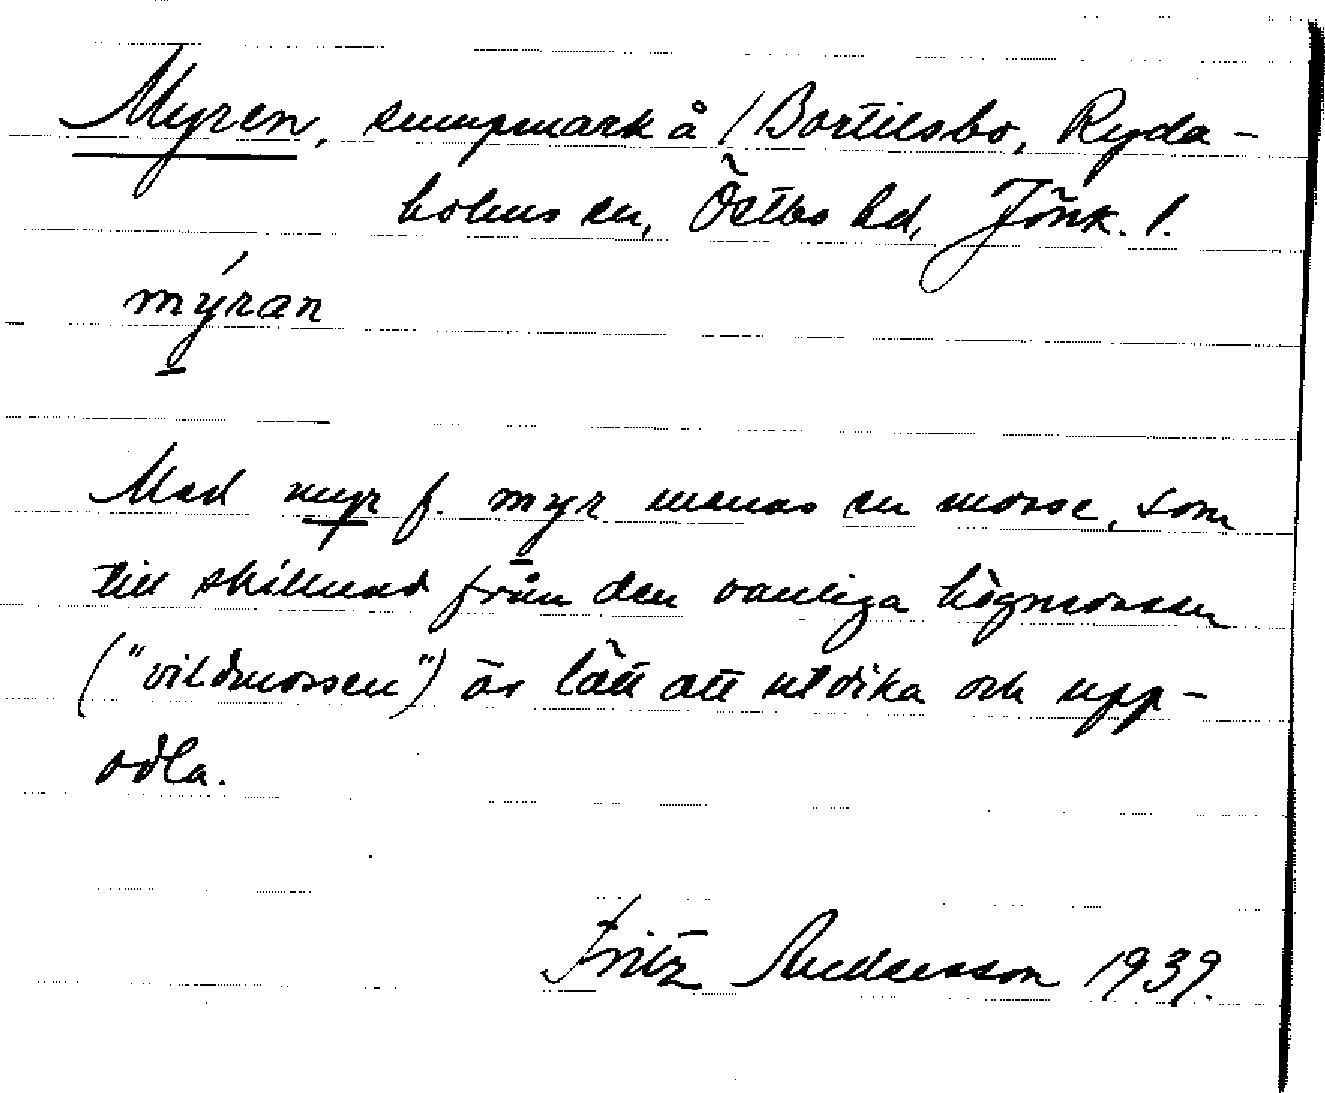 Myren, sumpmark å /Bortilsbo, Ryda-
holms sn, Östbo hd, Jönk. l.
mýran
Med myr f. myr menas en mosse, som
till skillnad från den vanliga högmossen
("vildmossen") är lätt att utdika och upp-
odla.
Fritz Andersson 1939.